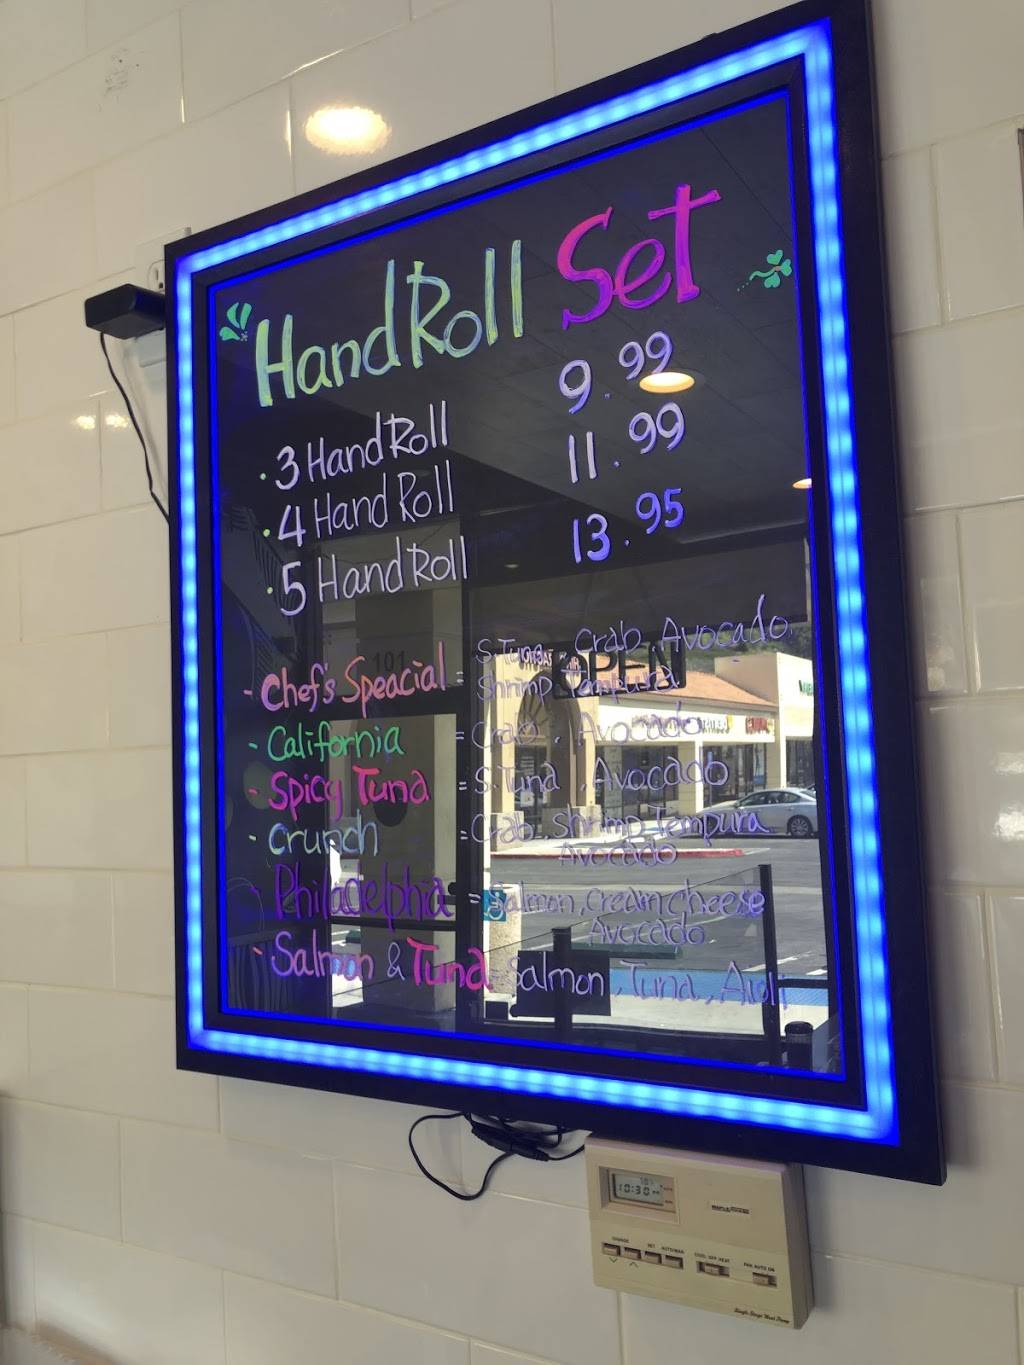 HandRoll Set
· 3 HandRoll 9.99
· 4 Hand Roll 11.99
· 5 HandRoll 13.95
- Chef's Speacial = S.Tuna, Crab, Avocado,
Shrimp Tempura
- California = Crab, Avocado
- Spicy Tuna = S.Tuna, Avocado
- Crunch = Crab, Shrimp Tempura
Avocado
- Philadelphia = Salmon, Cream Cheese
Avocado
- Salmon & Tuna = Salmon, Tuna, Aioli
101
OPEN
10:30
CHANGE SET AUTO/MAN COOL OFF HEAT FAN AUTO ON
Single Stage Heat Pump